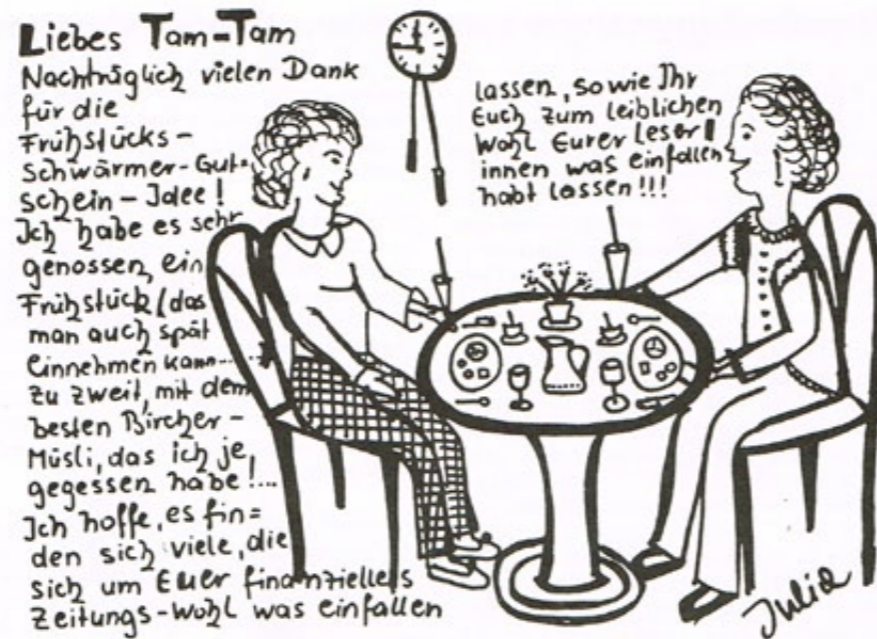 Liebes Tam-Tam
Nachträglich vielen Dank
für die
Frühstücks-
Schwärmer-Gut-
schein-Idee!
Ich habe es sehr
genossen, ein
Frühstück (das
man auch spät
einnehmen kann....
zu zweit, mit dem
besten Bircher-
Müsli, das ich je
gegessen habe!...
Ich hoffe, es fin=
den sich viele, die
sich um Euer finanzielles
Zeitungs-Wohl was einfallen
lassen, so wie Ihr
Euch zum leiblichen
Wohl Eurer Leser//
innen was einfallen
habt lassen!!!
Julia